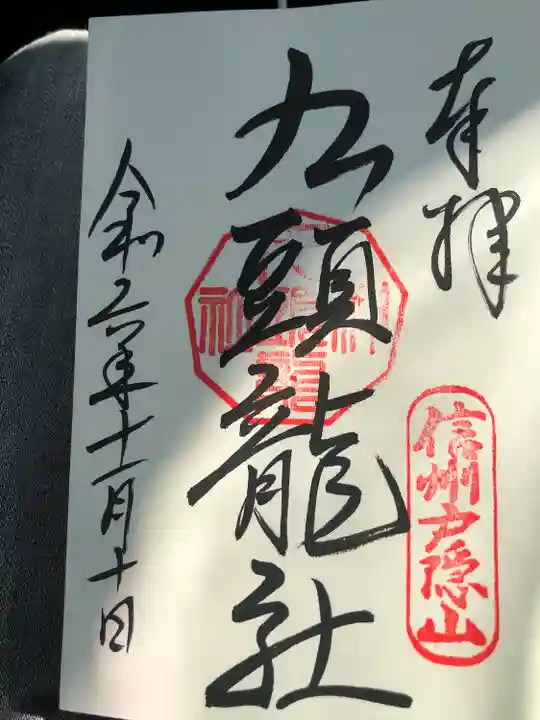 奉拝
信州戸隠山
九頭龍社
令和六年十一月十日